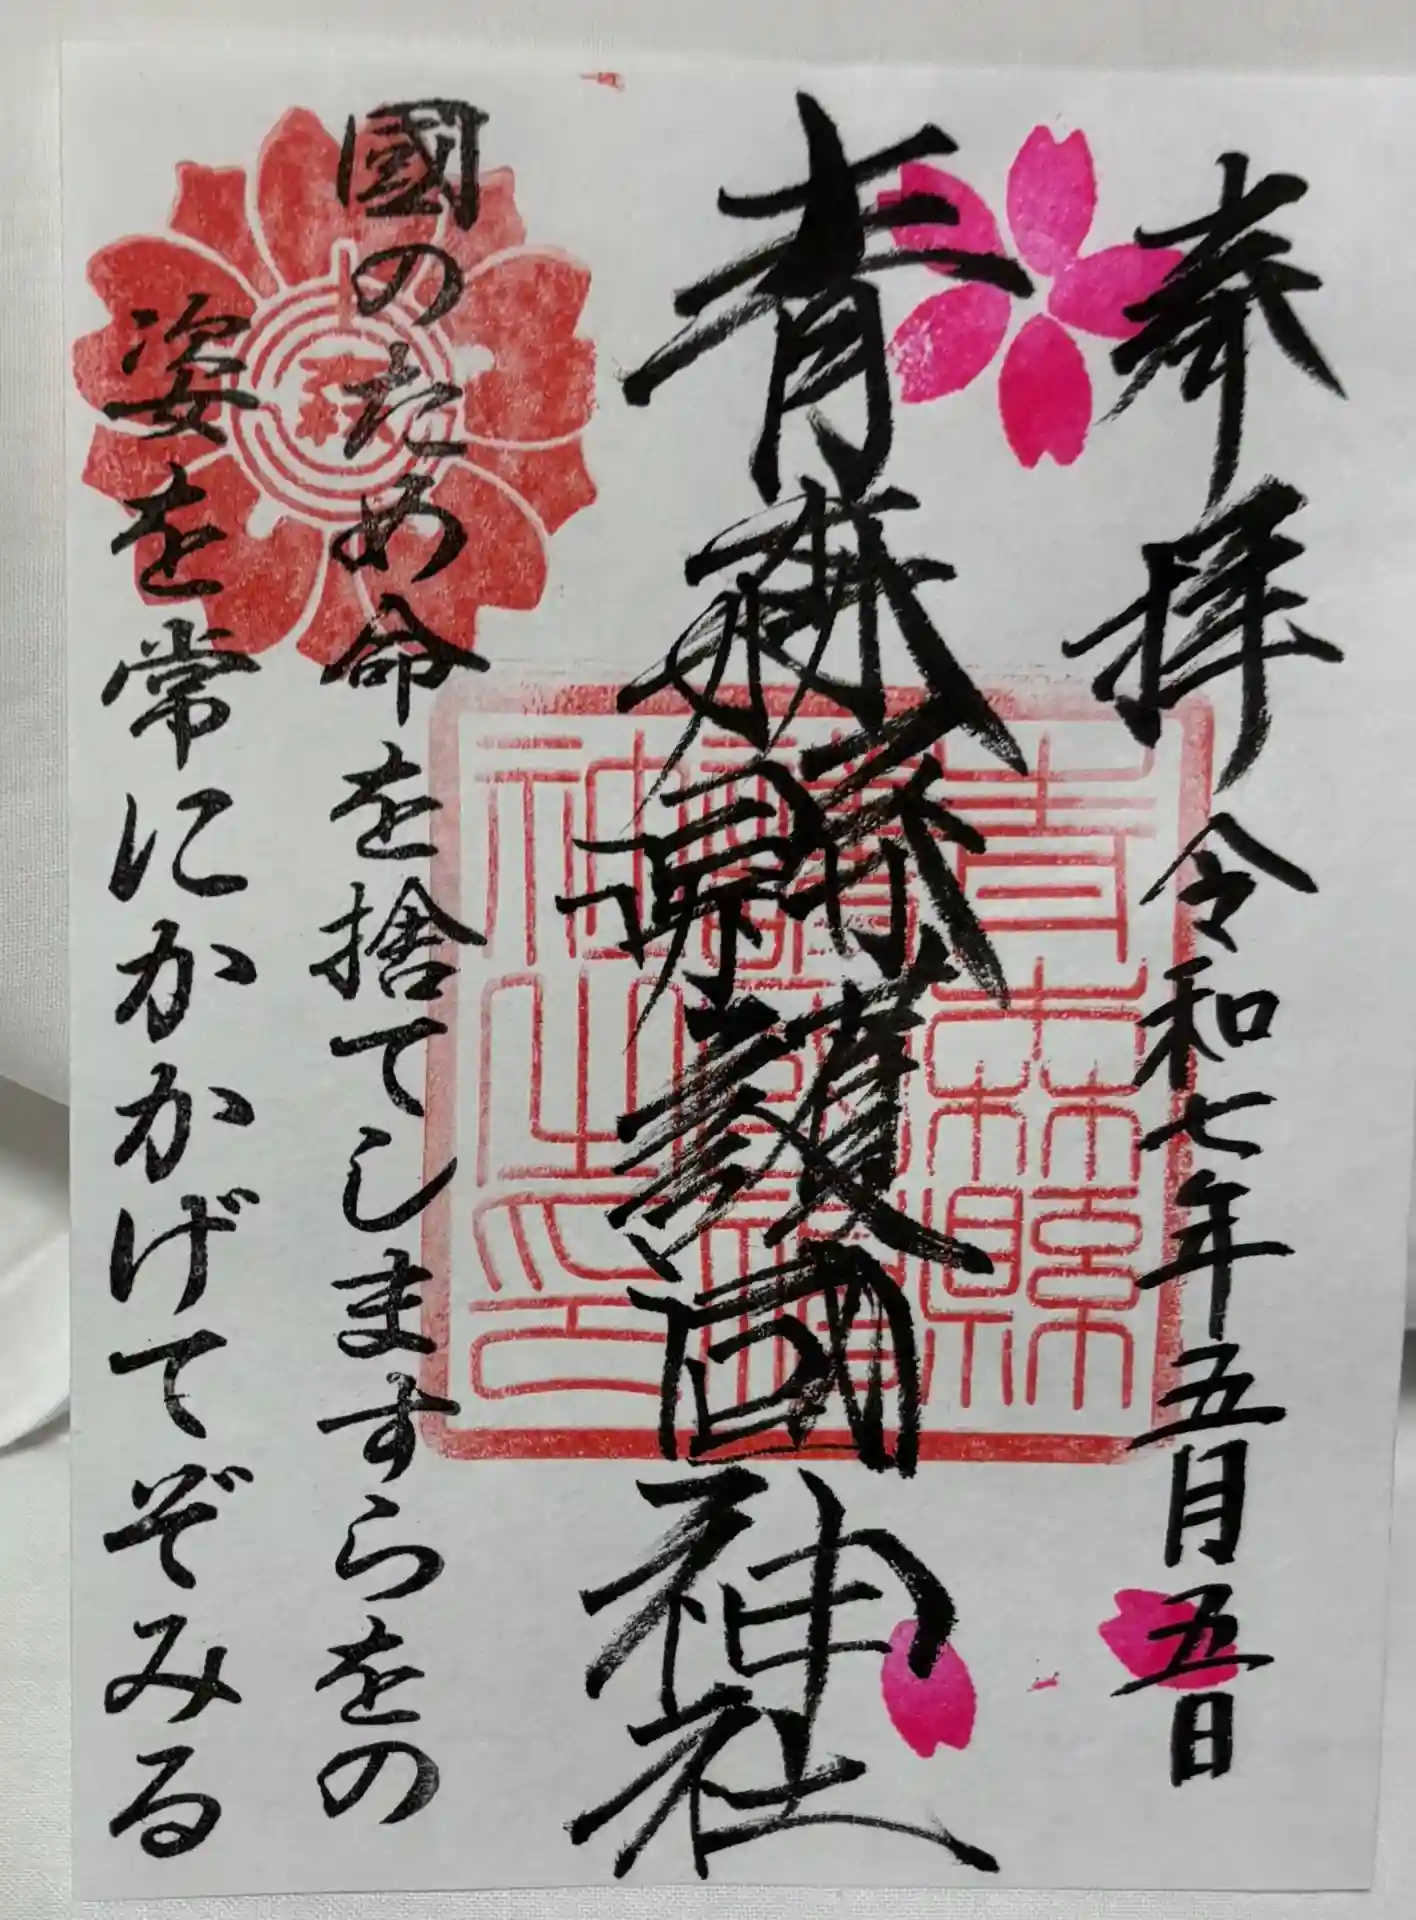 奉拝 令和七年五月五日
青森縣護國神社
國のため命を捨てしますらをの
姿を常にかかげてぞみる
青森縣
護國神
社之印